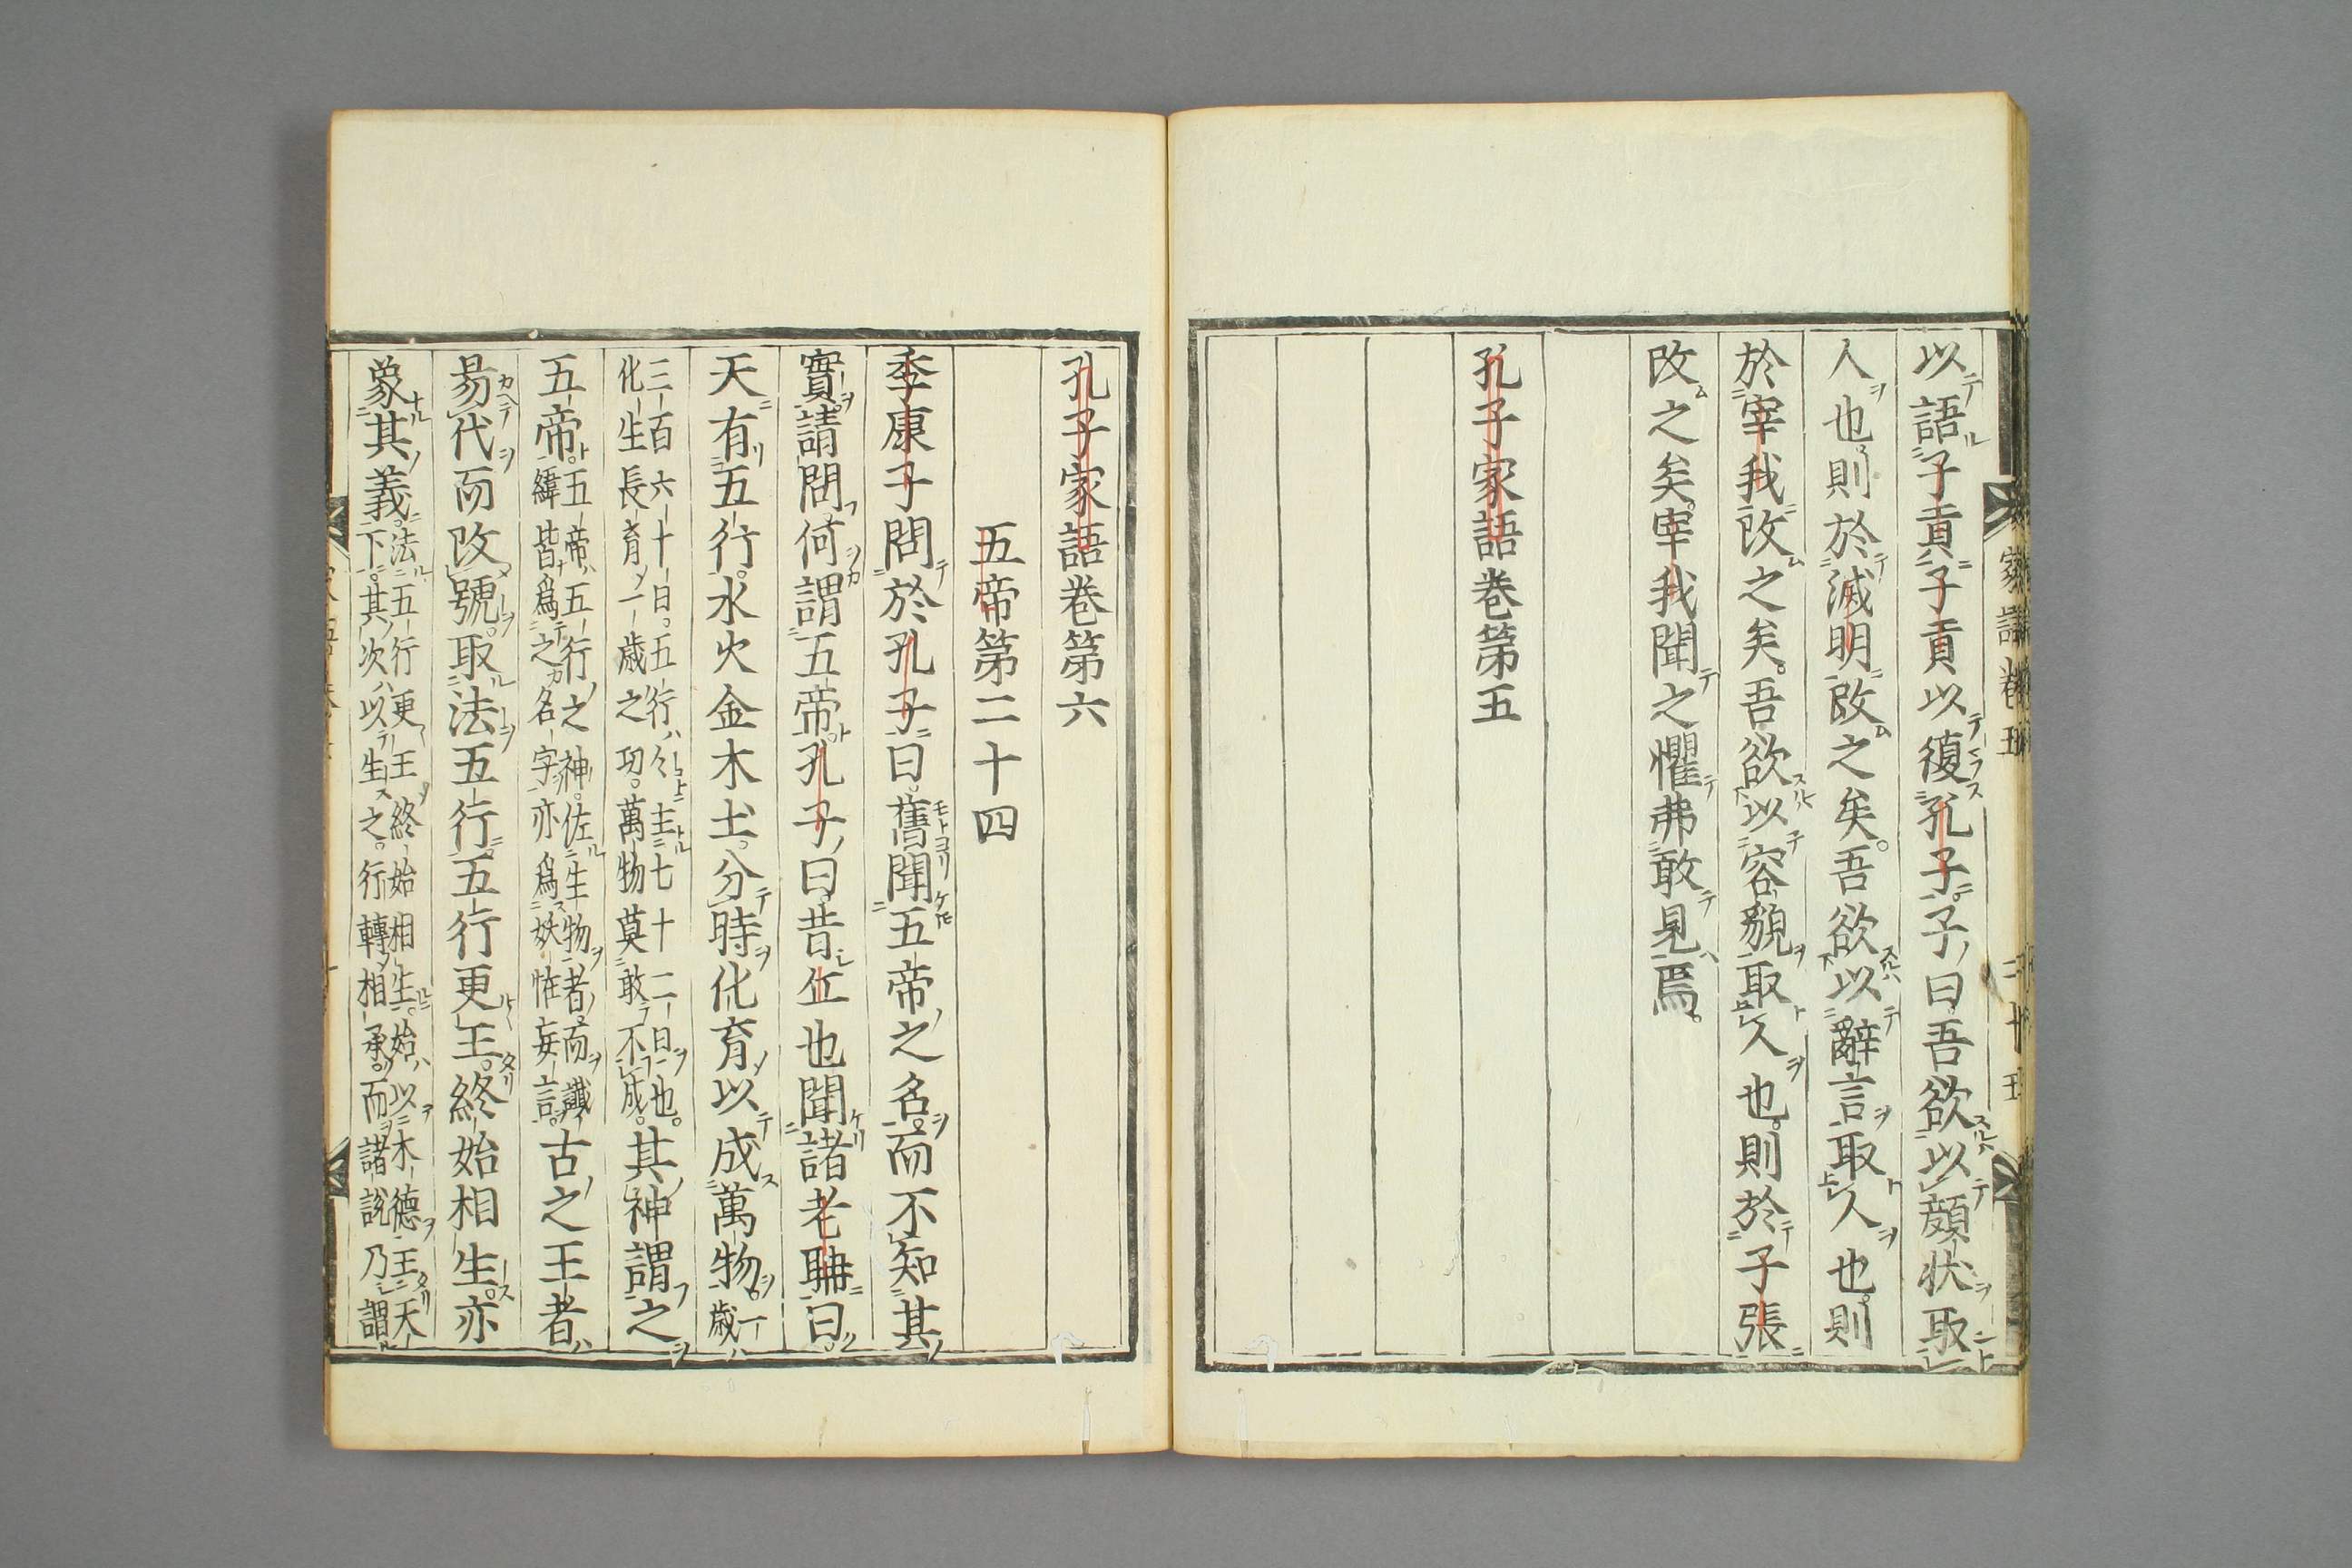 以語子貢子貢以復孔子子曰吾欲以顔状取
人也則於滅明改之矣吾欲以辭言取人也則
於宰我改之矣吾欲以容貌取人也則於子張
改之矣宰我聞之懼弗敢見焉
孔子家語巻第五
孔子家語巻第六
五帝第二十四
季康子問於孔子曰舊聞五帝之名而不知其
實請問何謂五帝孔子曰昔丘也聞諸老聃曰
天有五行水火金木土分時化育以成萬物一歳
三百六十日五行々主七十二日也化生長育一歳之功萬物莫敢不成其神謂之
五帝五帝五行之神佐生物者而讖緯皆爲之名字亦爲妖怪妄言古之王者
易代而改號取法五行五行更王終始相生亦
象其義法五行更王終始相生始以木德王天下其次以生之行轉相承而諸説乃謂